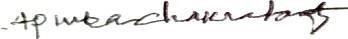 Apurba Chakraborty